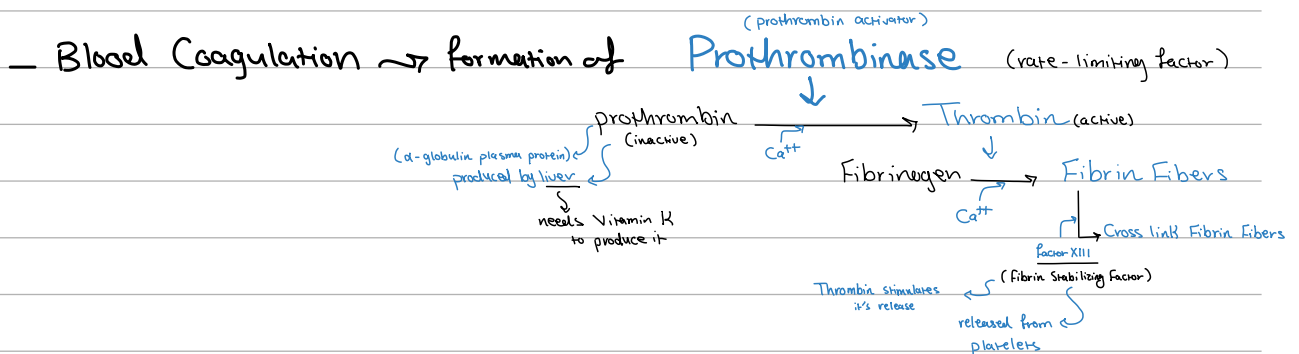 (prothrombin activator)
– Blood Coagulation → formation of Prothrombinase (rate-limiting factor)
prothrombin → Thrombin (active)
(inactive)
Ca++
(α-globulin plasma protein)
produced by liver
Fibrinogen → Fibrin Fibers
Ca++
needs Vitamin K
to produce it
Cross link Fibrin Fibers
factor XIII
(Fibrin Stabilizing Factor)
Thrombin stimulates
it's release
released from
platelets